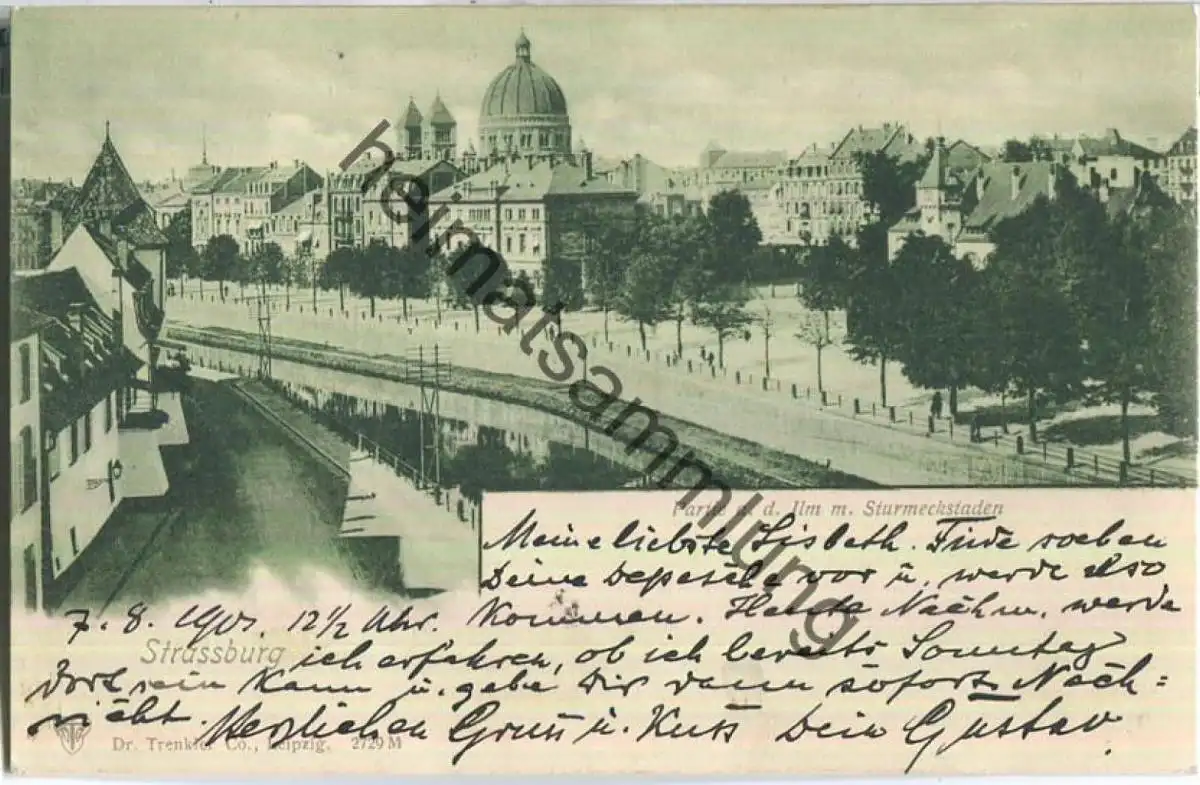 heimatsammlung
Partie a. d. Jlm m. Sturmeckstaden
Meine liebste Lisbeth. Finde soeben
Deine Depesche vor u. werde also
7. 8. 1901. 12½ Uhr. Kommen. Heute Nachm. werde
Strassburg
ich erfahren, ob ich bereits Sonntag
dort sein kann u. gebe Dir dann sofort Nach=
richt. Herzlichen Gruss u. Kuss Dein Gustav.
Dr. Trenkler Co., Leipzig. 2729 M